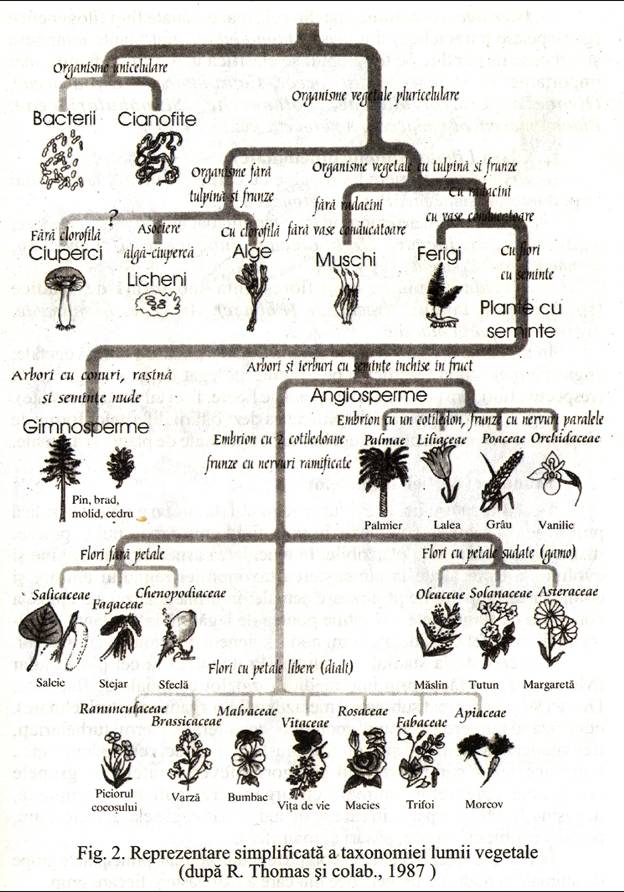 Organisme unicelulare
Organisme vegetale pluricelulare
Bacterii
Cianofite
Organisme fără
tulpină si frunze
Organisme vegetale cu tulpină si frunze
fără radacini
Cu radacini
cu vase conducatoare
?
Fără clorofilă
Asociere
algă-ciupercă
Cu clorofilă fără vase conducătoare
Cu flori
cu seminte
Ciuperci
Licheni
Alge
Muschi
Ferigi
Plante cu
seminte
Arbori cu conuri, rasină
si seminte nude
Arbori si ierburi cu seminte inchise in fruct
Angiosperme
Gimnosperme
Embrion cu 2 cotiledoane
frunze cu nervuri ramificate
Embrion cu un cotiledon, frunze cu nervuri paralele
Palmae
Liliaceae
Poaceae
Orchidaceae
Pin, brad,
molid, cedru
Palmier
Lalea
Grâu
Vanilie
Flori fară petale
Flori cu petale sudate (gamo)
Salicaceae
Fagaceae
Chenopodiaceae
Oleaceae
Solanaceae
Asteraceae
Salcie
Stejar
Sfeclă
Măslin
Tutun
Margaretă
Flori cu petale libere (diali)
Ranunculaceae
Brassicaceae
Malvaceae
Vitaceae
Rosaceae
Fabaceae
Apiaceae
Piciorul
cocoșului
Varză
Bumbac
Vița de vie
Macies
Trifoi
Morcov
Fig. 2. Reprezentare simplificată a taxonomiei lumii vegetale
(după R. Thomas și colab., 1987 )